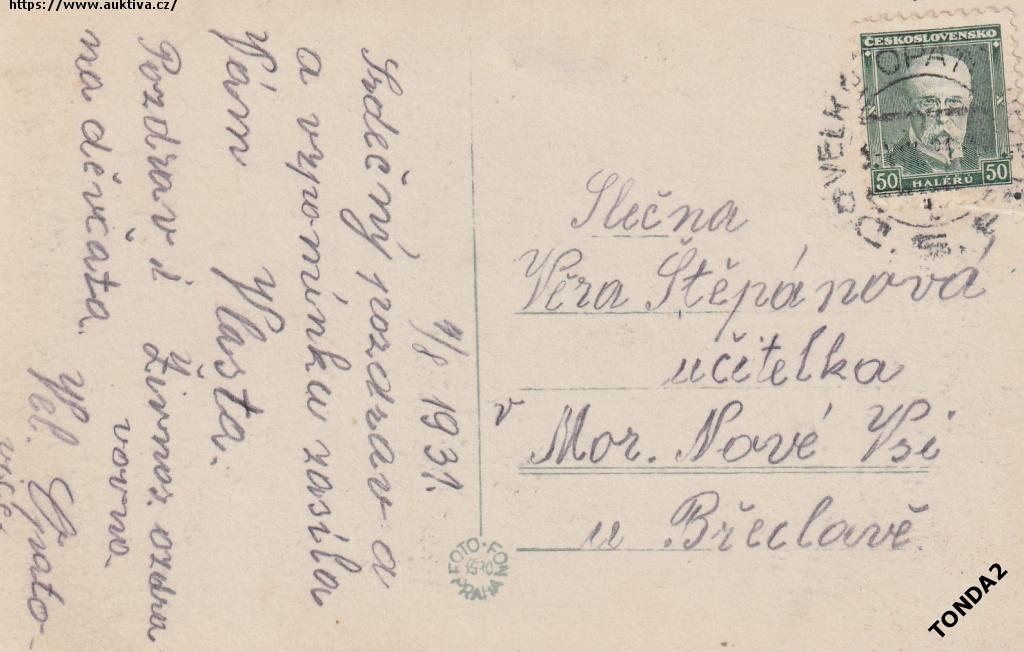 https://www.auktiva.cz/
4/8 1931.
Srdečný pozdrav a
a vzpomínku zasílá
Vám Vlasta.
Pozdrav i
na děvčata.
ČESKOSLOVENSKO
50 HALÉŘŮ 50
Slečna
Věra Štěpánová
učitelka
v Mor. Nové Vsi
u Břeclavě
FOTO-FON
1930
PRAHA
TONDA2